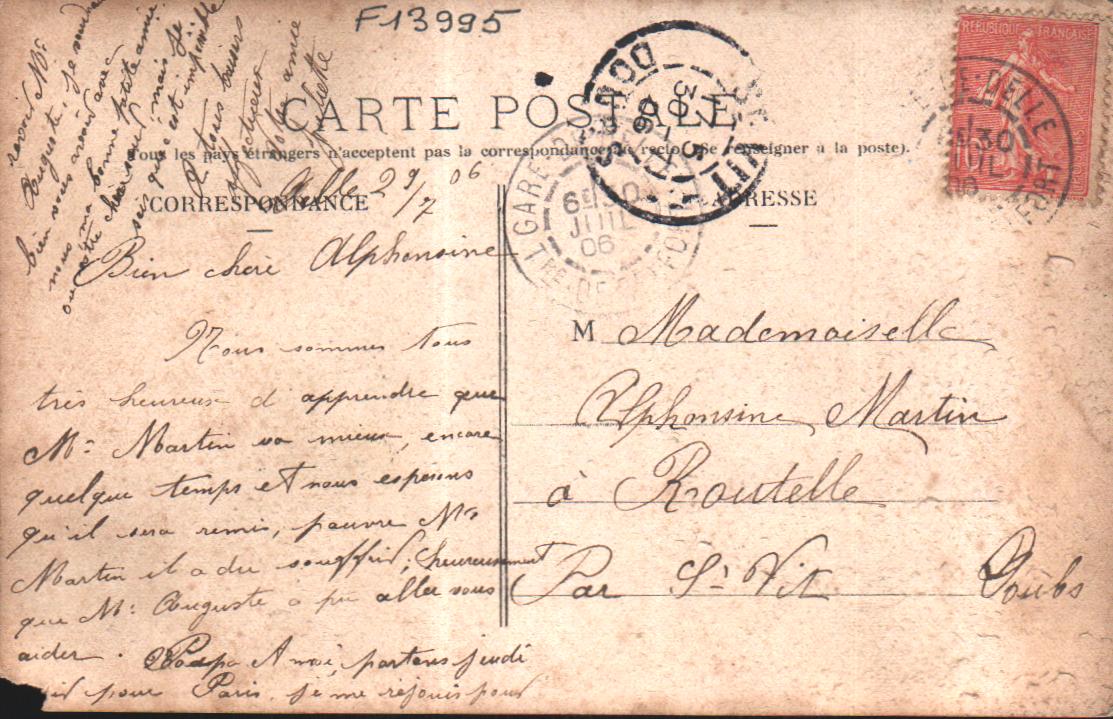 F13995
RÉPUBLIQUE FRANÇAISE
CARTE POSTALE
Tous les pays étrangers n'acceptent pas la correspondance au recto (Se renseigner à la poste).
CORRESPONDANCE
ADRESSE
Delle 29/7 06
Bien chère Alphonsine
Nous sommes tous
très heureux d'apprendre que
Mr Martin va mieux, encore
quelque temps et nous espérons
qu'il sera remis, pauvre Mr
Martin il a du souffrir, heureusement
que Mr Auguste a pu aller vous
aider. Papa et moi partons jeudi
pour Paris. je me réjouis pour
revoir Mr
Auguste, je voudrais
bien vous avoir avec
nous ma bonne petite amie
ou votre chère sœur, mais je
sais que c'est impossible
A tous baisers
affectueux
Votre amie
Juliette
M Mademoiselle
Alphonsine Martin
à Routelle
Par St Vit Doubs
GARE DE DELLE
TRE DE BELFORT
6E30
JUIL
06
DELLE
30
JUIL
BELFORT
ST VIT
DOUBS